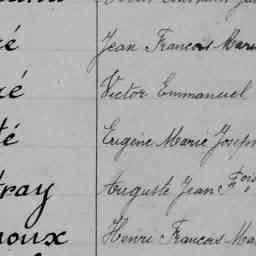 é Jean François Marie
é Victor Emmanuel
té Eugène Marie Joseph
ray Auguste Jean Fois
oux Henri François Ma